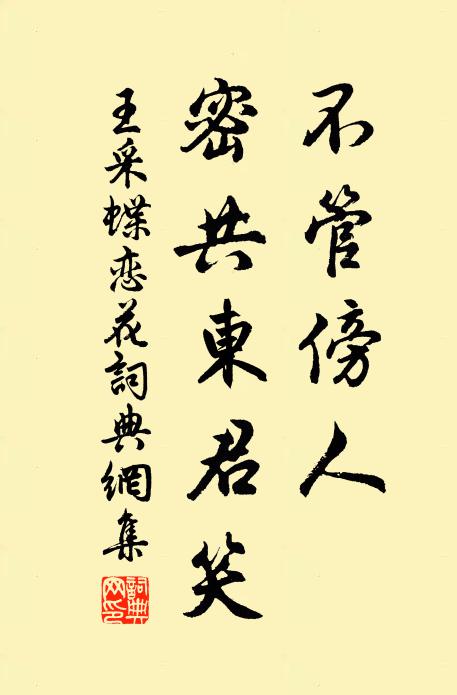 不管傍人
密共東君笑
王采蝶恋花詞典網集
詞典網印